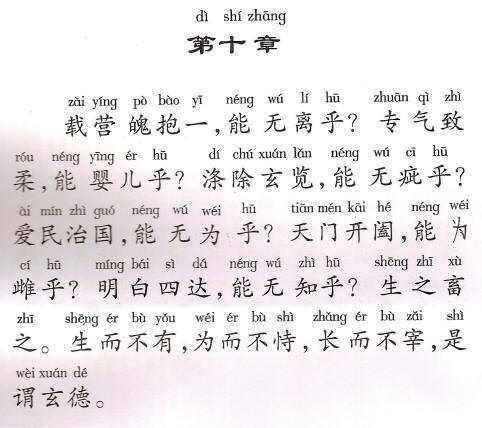 dì shí zhāng
第十章
zài yíng pò bào yī néng wú lí hū zhuān qì zhì
载营魄抱一,能无离乎?专气致
róu néng yīng ér hū dí chú xuán lǎn néng wú cī hū
柔,能婴儿乎?涤除玄览,能无疵乎?
ài mín zhì guó néng wú wéi hū tiān mén kāi hé néng wéi
爱民治国,能无为乎?天门开阖,能为
cí hū míng bái sì dá néng wú zhì hū shēng zhī xù
雌乎?明白四达,能无知乎?生之畜
zhī shēng ér bù yǒu wéi ér bù shì zhǎng ér bù zǎi shì
之。生而不有,为而不恃,长而不宰,是
wèi xuán dé
谓玄德。